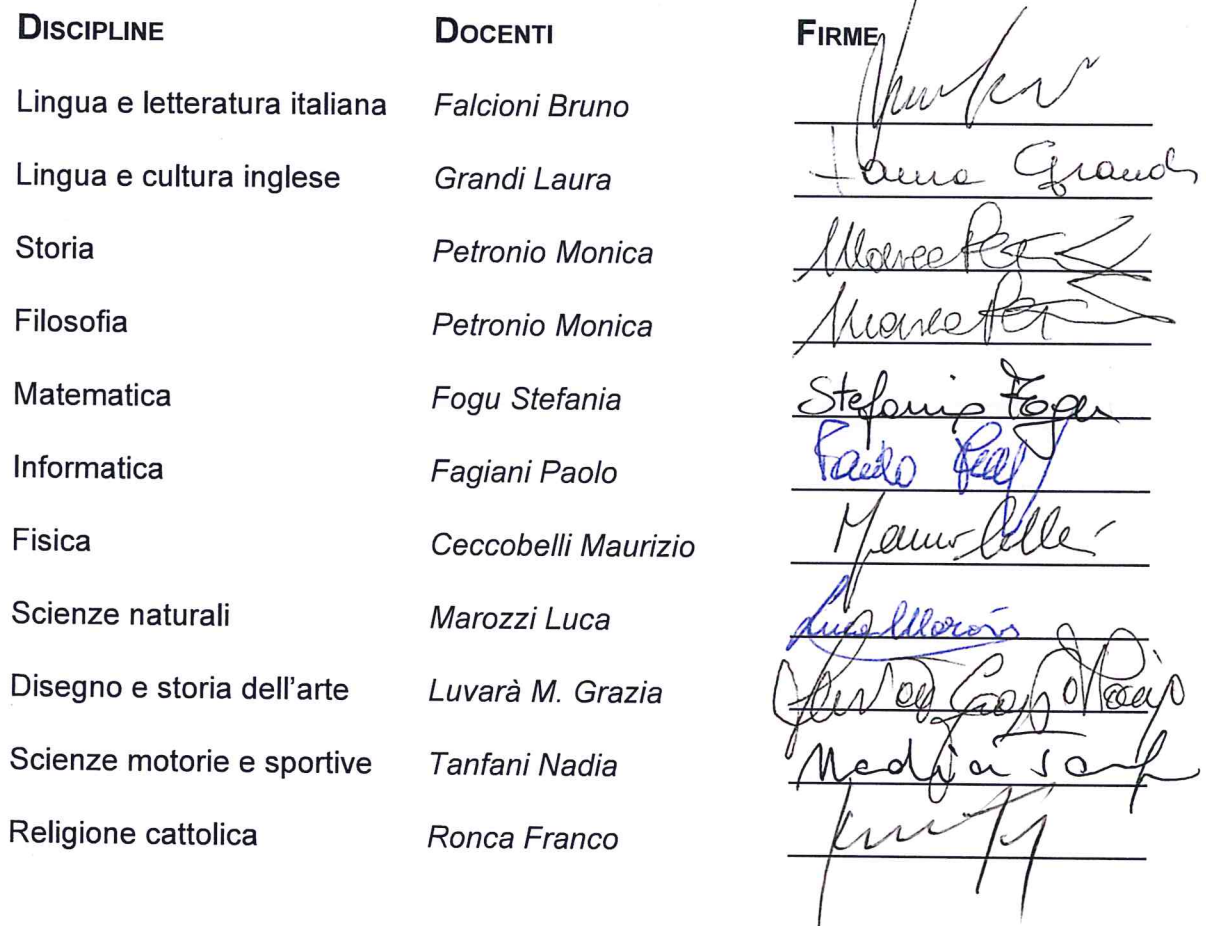 DISCIPLINE DOCENTI FIRME
Lingua e letteratura italiana Falcioni Bruno
Lingua e cultura inglese Grandi Laura Laura Grandi
Storia Petronio Monica
Filosofia Petronio Monica
Matematica Fogu Stefania Stefania Fogu
Informatica Fagiani Paolo Paolo
Fisica Ceccobelli Maurizio
Scienze naturali Marozzi Luca Luca Marozzi
Disegno e storia dell'arte Luvarà M. Grazia
Scienze motorie e sportive Tanfani Nadia Nadia
Religione cattolica Ronca Franco